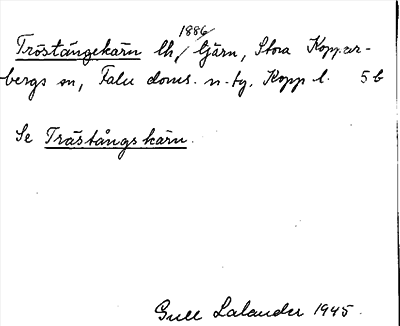 1886
Tröstångekärn lh, tjärn, Stora Koppar-
bergs sn, Falu doms. n. tg. Kopp l. 5 b
Se Tråstångskärn.
Gull Lalander 1945.